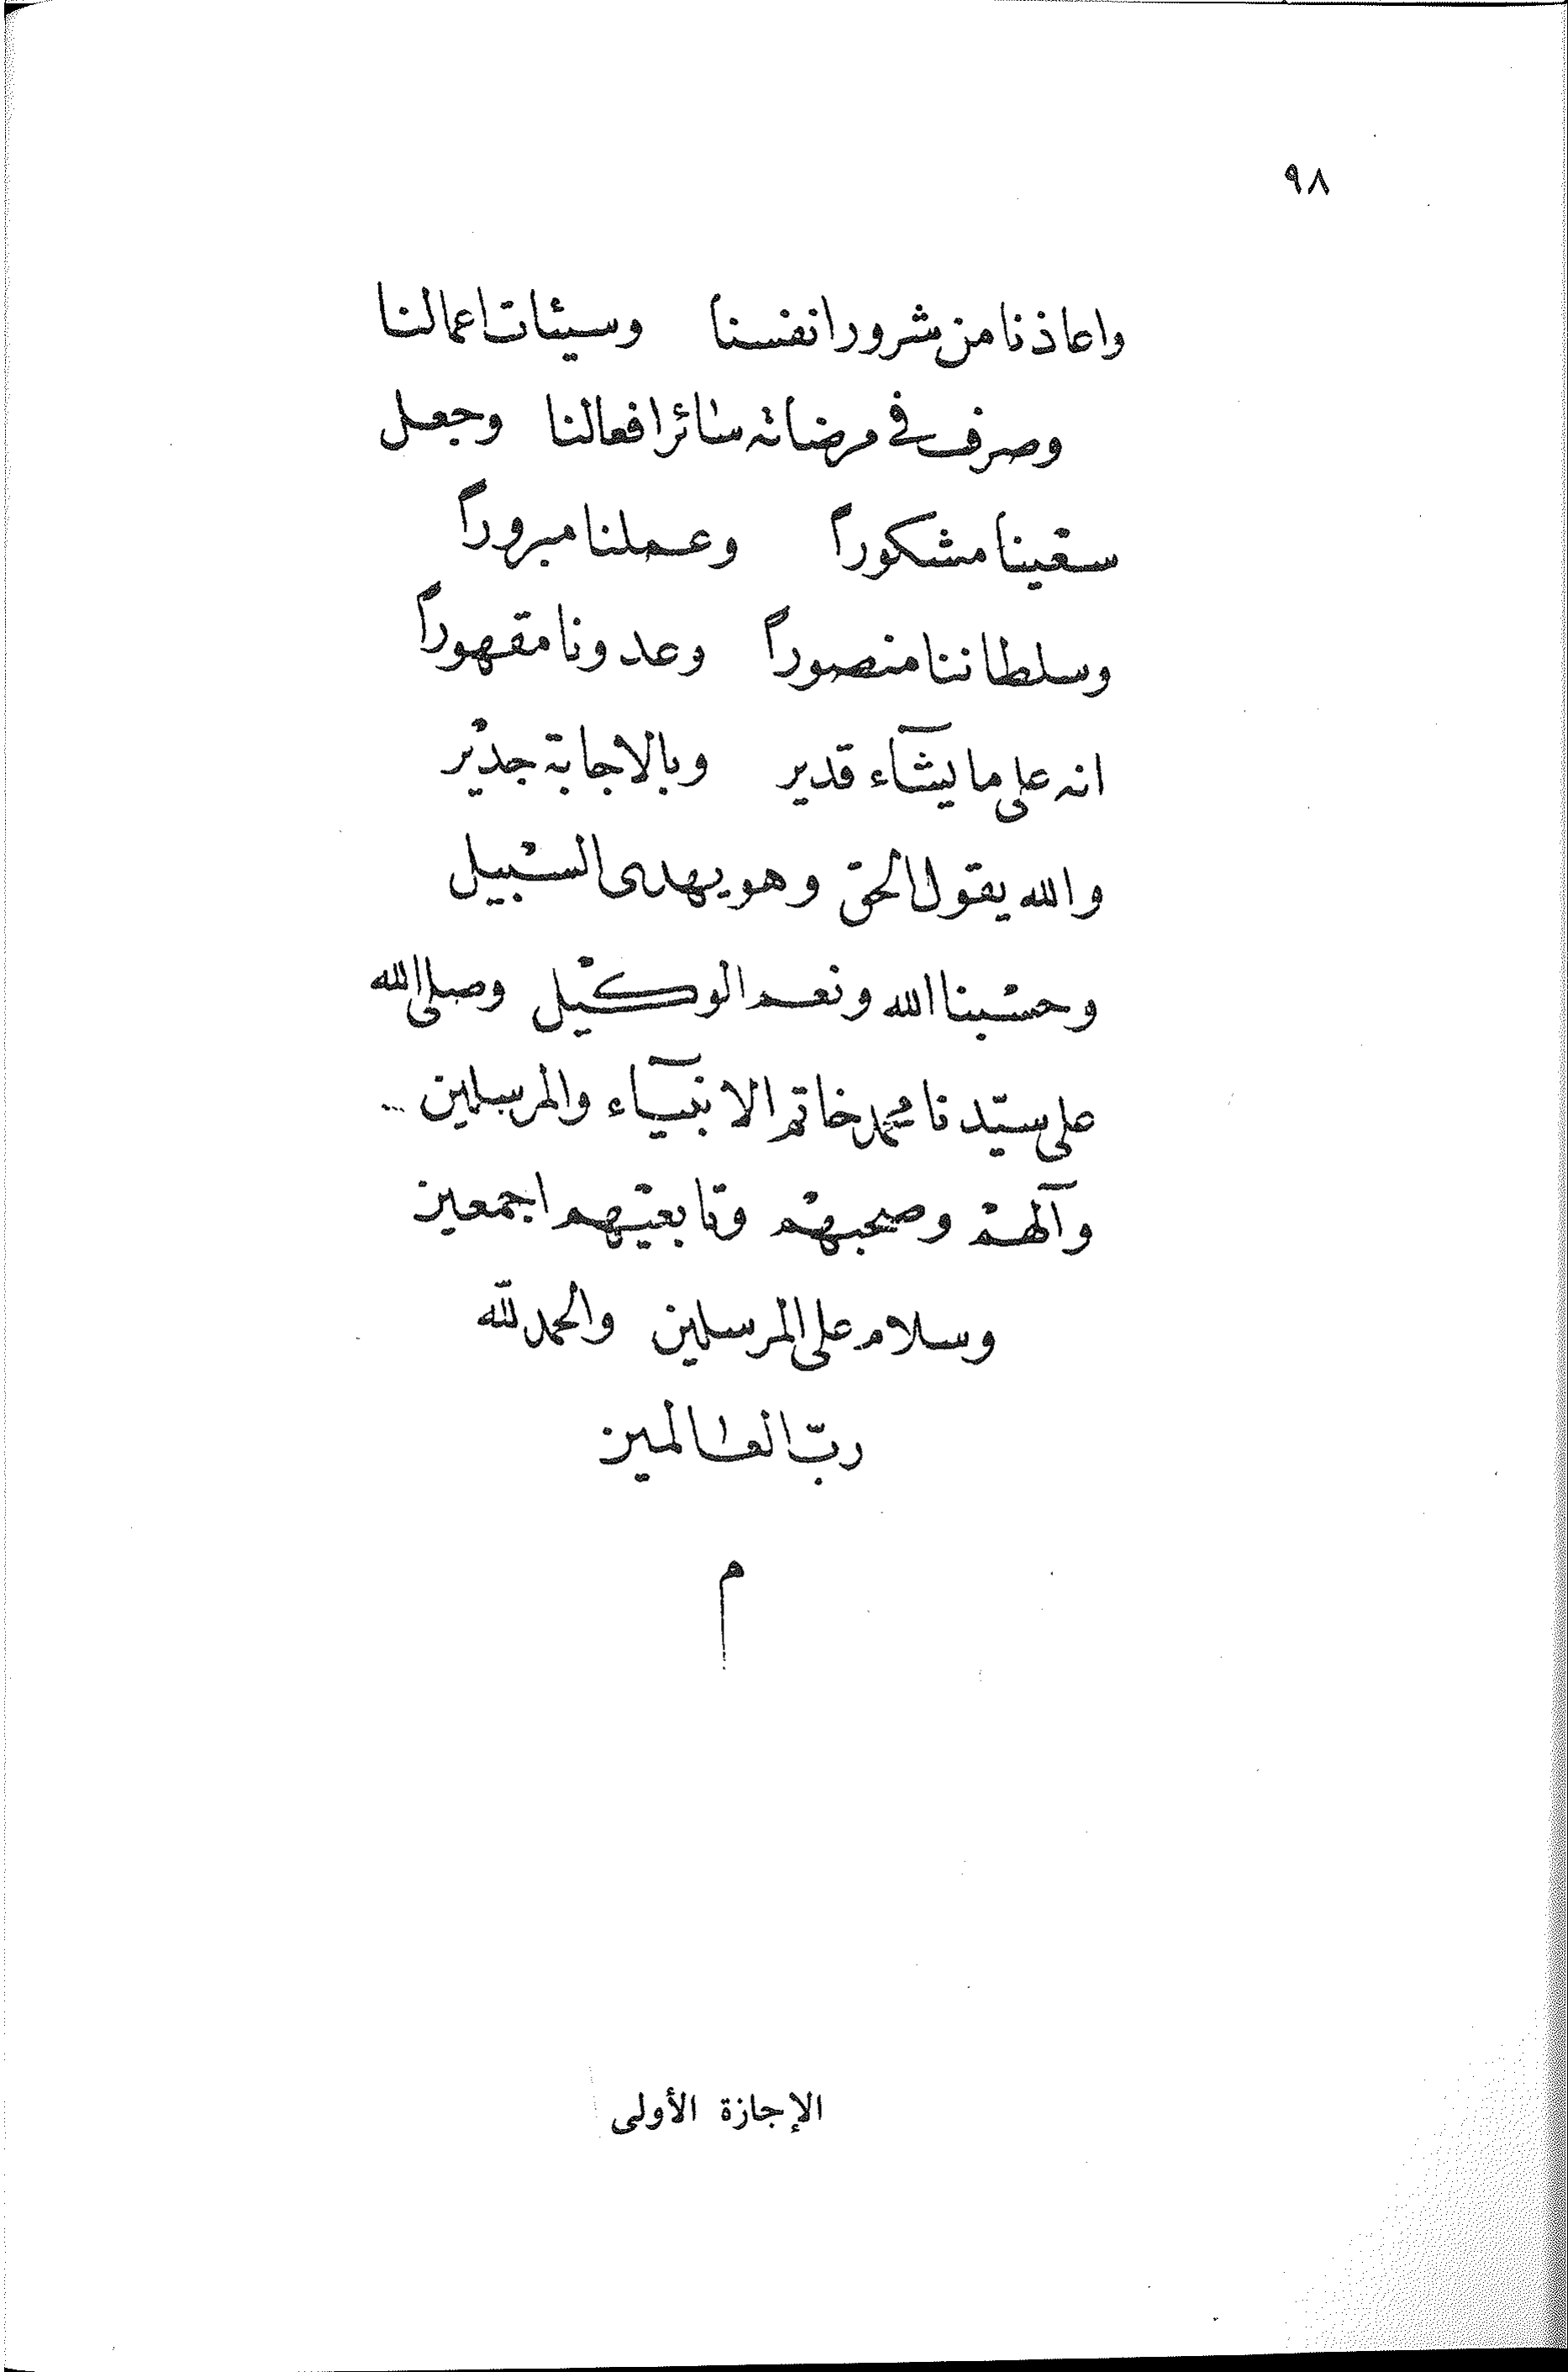 ٩٨
واعاذنا من شرور انفسنا وسيئات اعمالنا
وصرف فى مرضاته سائر افعالنا وجعل
سعينا مشكوراً وعملنا مبروراً
وسلطاننا منصوراً وعدونا مقهوراً
انه على ما يشآء قدير وبالاجابة جدير
والله يقول الحق وهو يهدى السبيل
وحسبنا الله ونعم الوكيل وصلى الله
على سيّدنا محمد خاتم الانبيآء والمرسلين
وآلهم وصحبهم وتابعيهم اجمعين
وسلام على المرسلين والحمد لله
ربّ العالمين
م
الإجازة الأولى